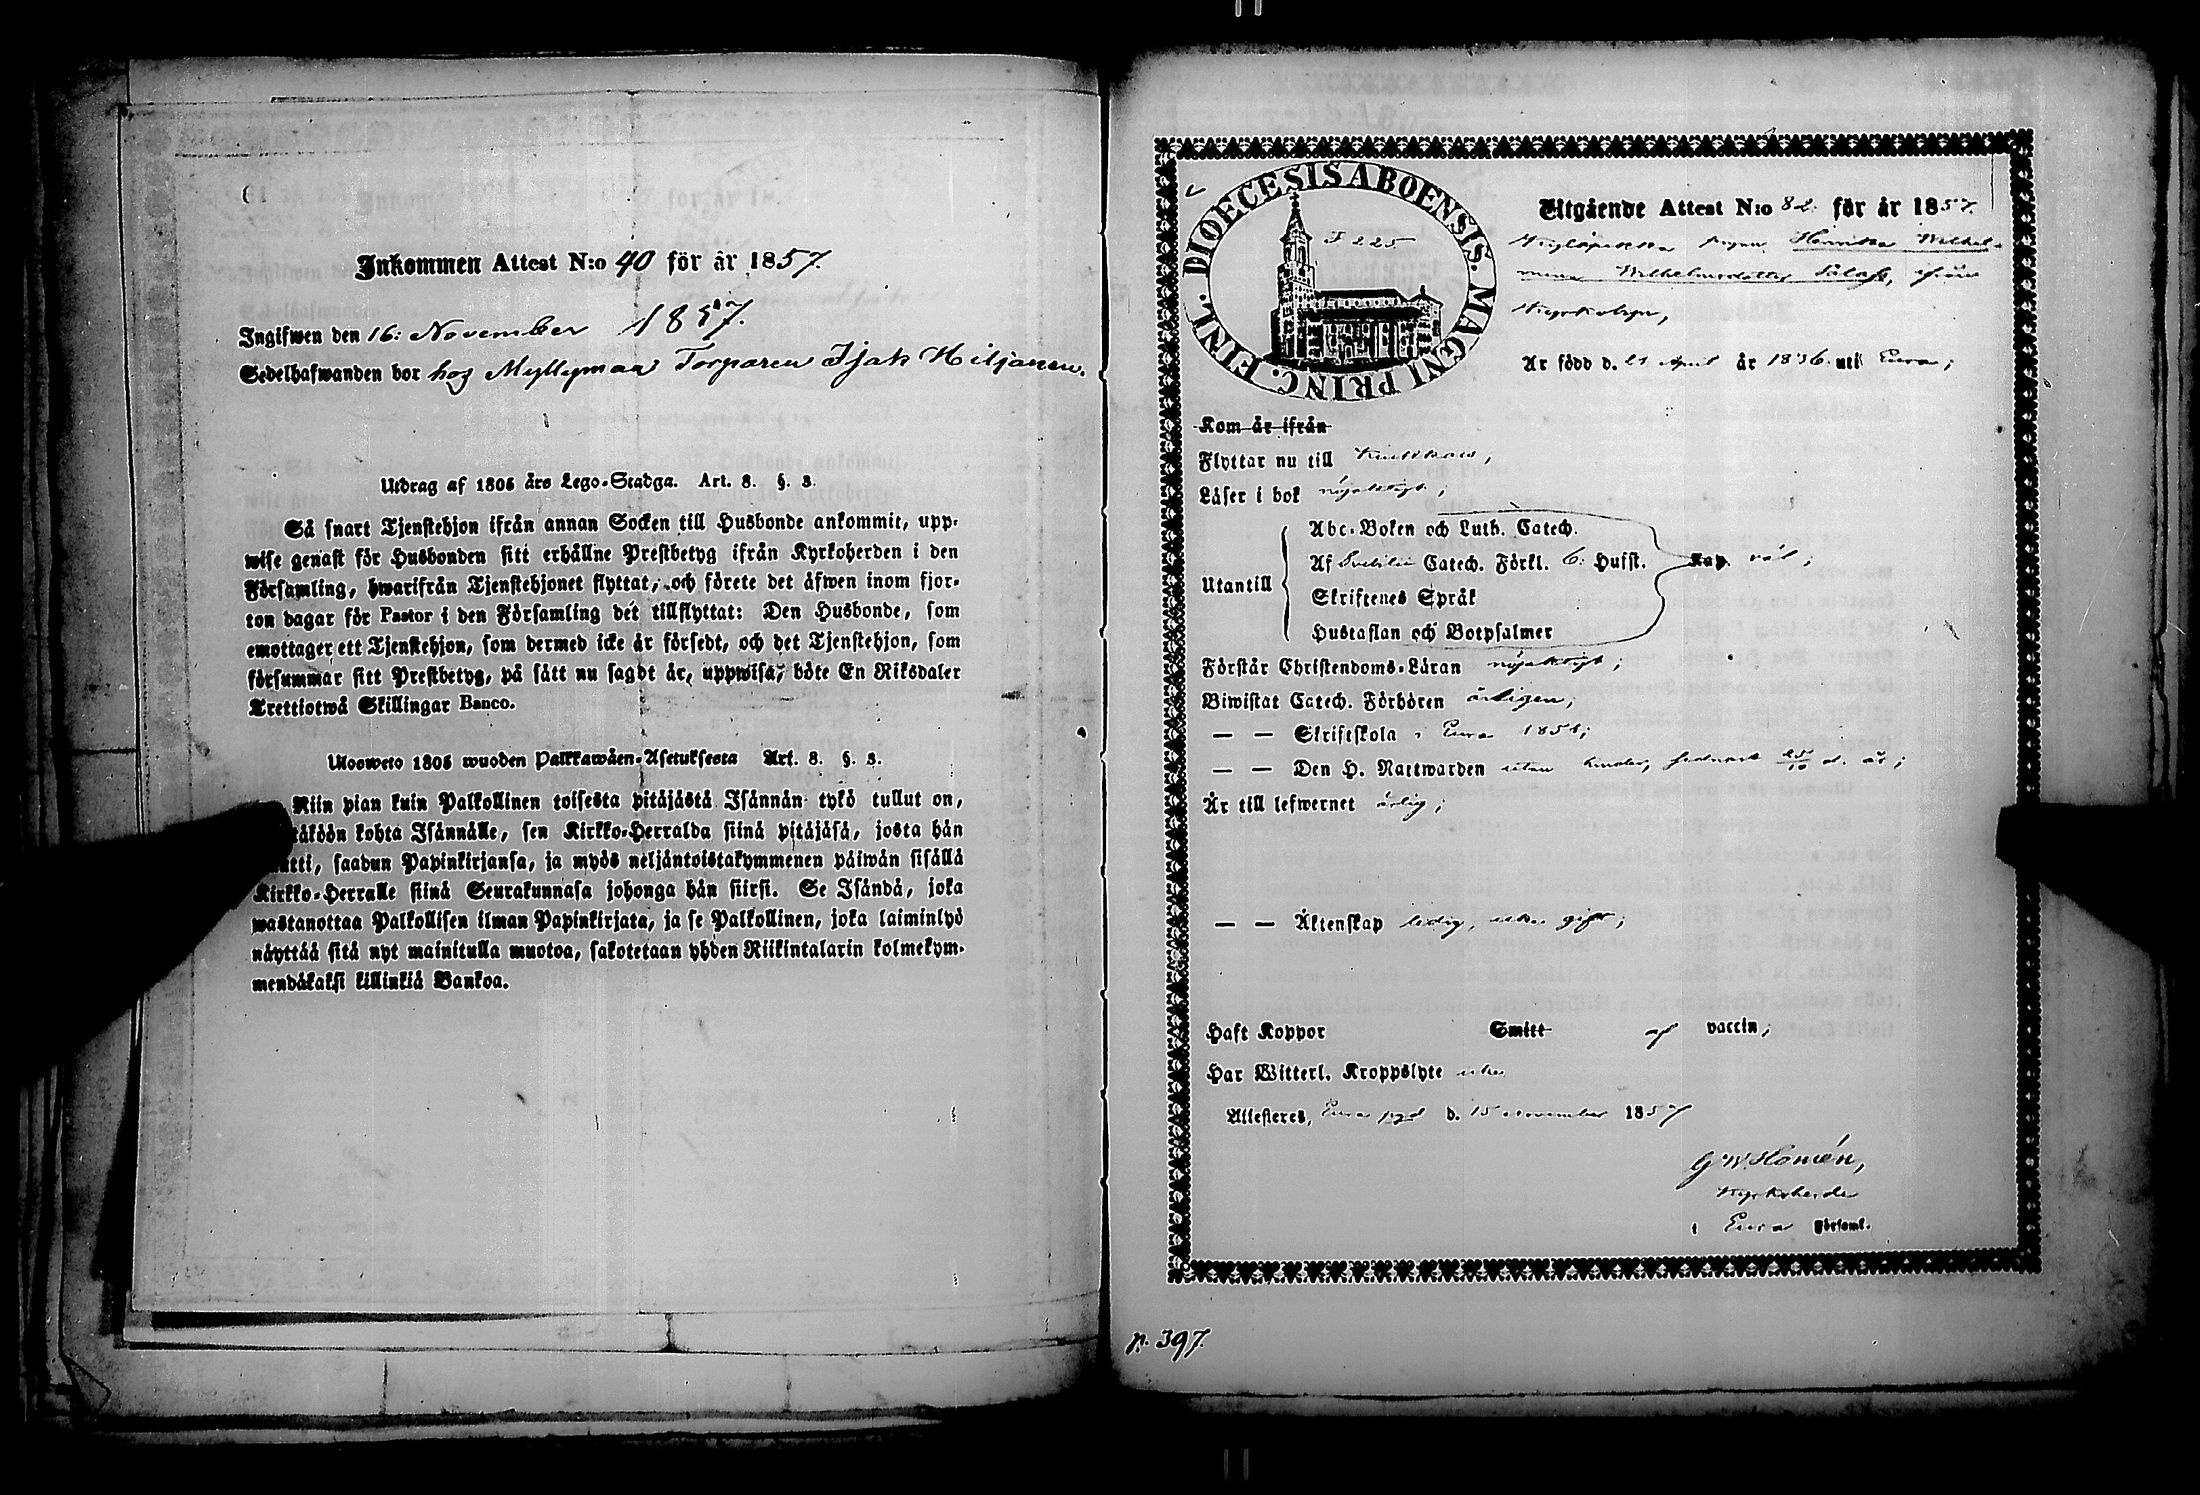 Inkommen Attest N:o 40 för år 1857.
Ingifwen den 16: November 1857.
Sedelhafwanden bor hos Myllymaa Torparen Isak Hiljanen.
Utdrag af 1805 års Lego-Stadga. Art. 8. §. 3.
Så snart Tjenstehjon ifrån annan Socken till Husbonde ankommit, upp-
wise genast för Husbonden sitt erhållne Prestbetyg ifrån Kyrkoherden i den
Församling, hwarifrån Tjenstehjonet flyttat, och förete det äfwen inom fjor-
ton dagar för Pastor i den Församling det tillflyttat: Den Husbonde, som
emottager ett Tjenstehjon, som dermed icke är försedt, och det Tjenstehjon, som
försummar sitt Prestbetyg, på sätt nu sagdt är, uppwisa, böte En Riksdaler
Trettiotwå Skillingar Banco.
Ulosweto 1805 wuoden Palkkawäen-Asetuksesta Art. 8. §. 3.
Niin pian kuin Palkollinen toisesta pitäjästä Isännän tykö tullut on,
kohta Isännälle, sen Kirkko-Herralda siinä pitäjäsä, josta hän
saadun Papinkirjansa, ja myös neljäntoistakymmenen päiwän sisällä
Kirkko-Herralle siinä Seurakunnasa johonga hän siirsi. Se Isändä, joka
wastanottaa Palkollisen ilman Papinkirjata, ja se Palkollinen, joka laiminlyö
näyttää sitä nyt mainitulla muotoa, sakotetaan yhden Riikintalarin kolmekym-
mendäkaksi killinkiä Bankoa.
DIOECESIS ABOENSIS. MAGNI PRINC. FINL.
F 225
Utgående Attest N:o 82. för år 1857.
pigan Henrika Wilhel-
mina Wilhelmsdotter ifrån
Kyrkobyn,
Är född d. 21 April år 1836. uti Eura;
Kom år ifrån
Flyttar nu till
Läser i bok nöjaktigt;
Utantill
Abc-Boken och Luth. Catech.
Af Svebilii Catech. Förkl. 6: Hufst.
Skriftenes Språk
Hustaflan och Botpsalmer
Kap. väl;
Förstår Christendoms-Läran nöjaktigt;
Biwistat Catech. Förhören årligen;
— — Skriftskola i Eura
— — Den H. Nattwarden utan hinder, sednast 25/10 d. år;
Är till lefwernet ärlig;
— — Äktenskap ledig, icke gift;
Haft Koppor Smitt af vaccin;
Har Witterl. Kroppslyte icke
Attesteres, Eura pgd d. 15 November 1857
G W Homén,
Kyrkoherde
i Eura Församl.
p. 397.